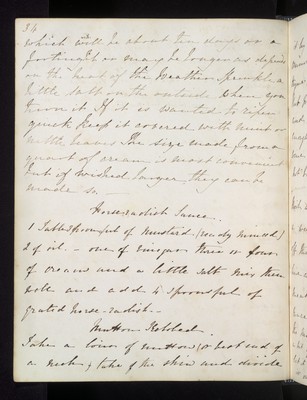 34
which will be about ten days or a
fortnight or may be longer as it depends
on the heat of the weather Sprinkle a
little salt on the outside when you
turn it If it is wanted to ripen
quick keep it covered with mint or
nettle leaves The size made from a
quart of cream is most convenient
but if wished larger they can be
made so
Horse-radish Sauce.
1 Tablespoonful of mustard (ready mixed)
2 of oil - one of vinegar three or four
of cream and a little salt mix these
well and add 4 spoonsful of
grated horse-radish -
Mutton Kebbed.
Take a loin of mutton (or best end of
a neck) take of the skin and divide